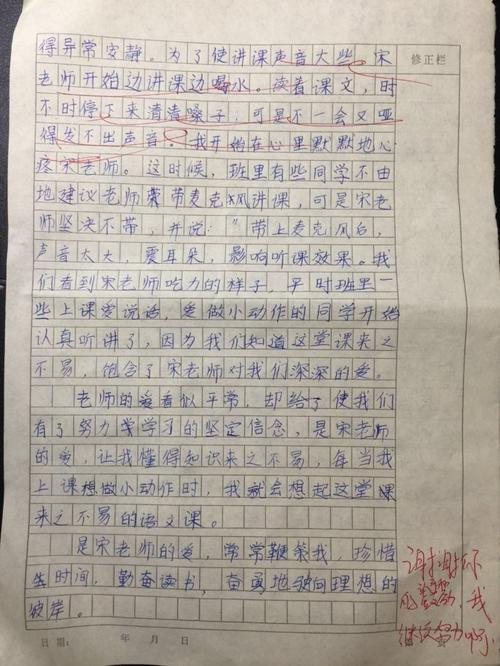 得异常安静。为了使讲课声音大些。宋
修正栏
老师开始边讲课边喝水。读着课文，时
不时停下来清清嗓子，可是不一会又哑
得发不出声音。我开始在心里默默地心
疼宋老师。这时候，班里有些同学不由
地建议老师带麦克风讲课，可是宋老
师坚决不带，并说："带上麦克风后，
声音太大，震耳朵，影响听课效果。我
们看到宋老师吃力的样子，平时班里一
些上课爱说话，爱做小动作的同学开始
认真听讲了，因为我们知道这堂课来之
不易，饱含了宋老师对我们深深的爱。
老师的爱看似平常，却给了使我们
有了努力学习的坚定信念，是宋老师
的爱，让我懂得知识来之不易，每当我
上课想做小动作时，我就会想起这堂课
来之不易的语文课。
是宋老师的爱，常常鞭策我，珍惜
生时间，勤奋读书，奋勇地驶向理想的
彼岸。
谢谢你
的鼓励，我
继续努力啊！
日期： 年 月 日
第 页